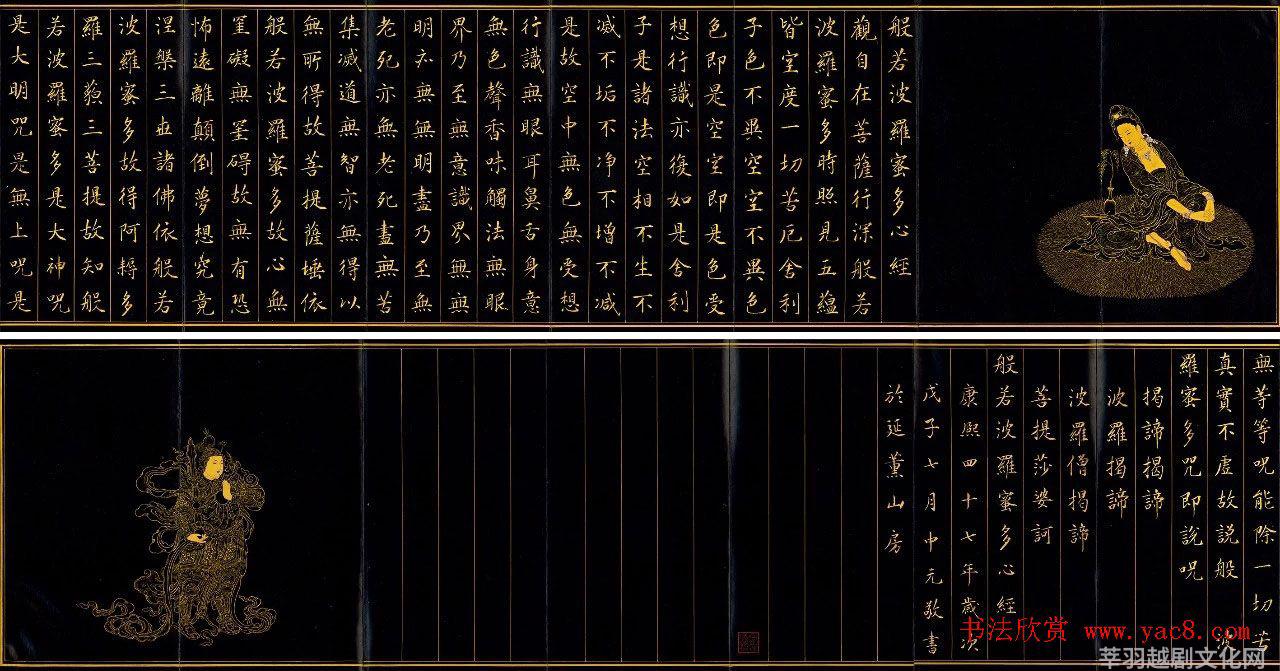 般若波羅蜜多心經
觀自在菩薩行深般若
波羅蜜多時照見五蘊
皆空度一切苦厄舍利
子色不異空空不異色
色即是空空即是色受
想行識亦復如是舍利
子是諸法空相不生不
滅不垢不净不增不減
是故空中無色無受想
行識無眼耳鼻舌身意
無色聲香味觸法無眼
界乃至無意識界無無
明亦無無明盡乃至無
老死亦無老死盡無苦
集滅道無智亦無得以
無所得故菩提薩埵依
般若波羅蜜多故心無
罣礙無罣碍故無有恐
怖遠離顛倒夢想究竟
涅槃三世諸佛依般若
波羅蜜多故得阿耨多
羅三藐三菩提故知般
若波羅蜜多是大神咒
是大明咒是無上咒是
無等等咒能除一切苦
真實不虛故說般波
羅蜜多咒即說咒
揭諦揭諦
波羅揭諦
波羅僧揭諦
菩提莎婆訶
般若波羅蜜多心經
康熙四十七年歲次
戊子七月中元敬書
於延薰山房
书法欣赏 www.yac8.com
莘羽越剧文化网